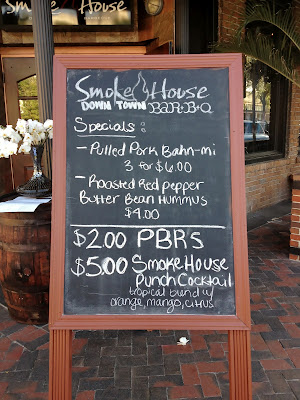 Smoke House
Smoke House
DOWN TOWN BAR·B·Q
Specials :
- Pulled Pork Bahn-mi
3 for $6.00
- Roasted Red pepper
Butter Bean Hummus
$4.00
$2.00 PBRs
$5.00 SmokeHouse
Punch Cocktail
tropical blend w/
orange, mango, citrus